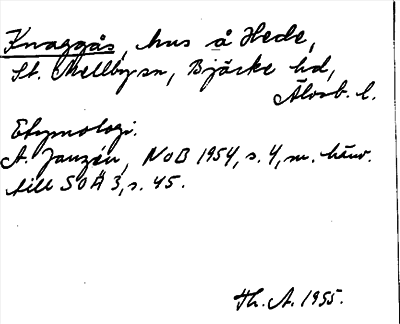 Knaggås, hus å Hede,
St. Mellby sn, Bjärke hd,
Älvsb. l.
Etymologi.
A. Janzén, NoB 1954, s. 4, m. hänv.
till SOÄ 3, s. 45.
Th. A. 1955.